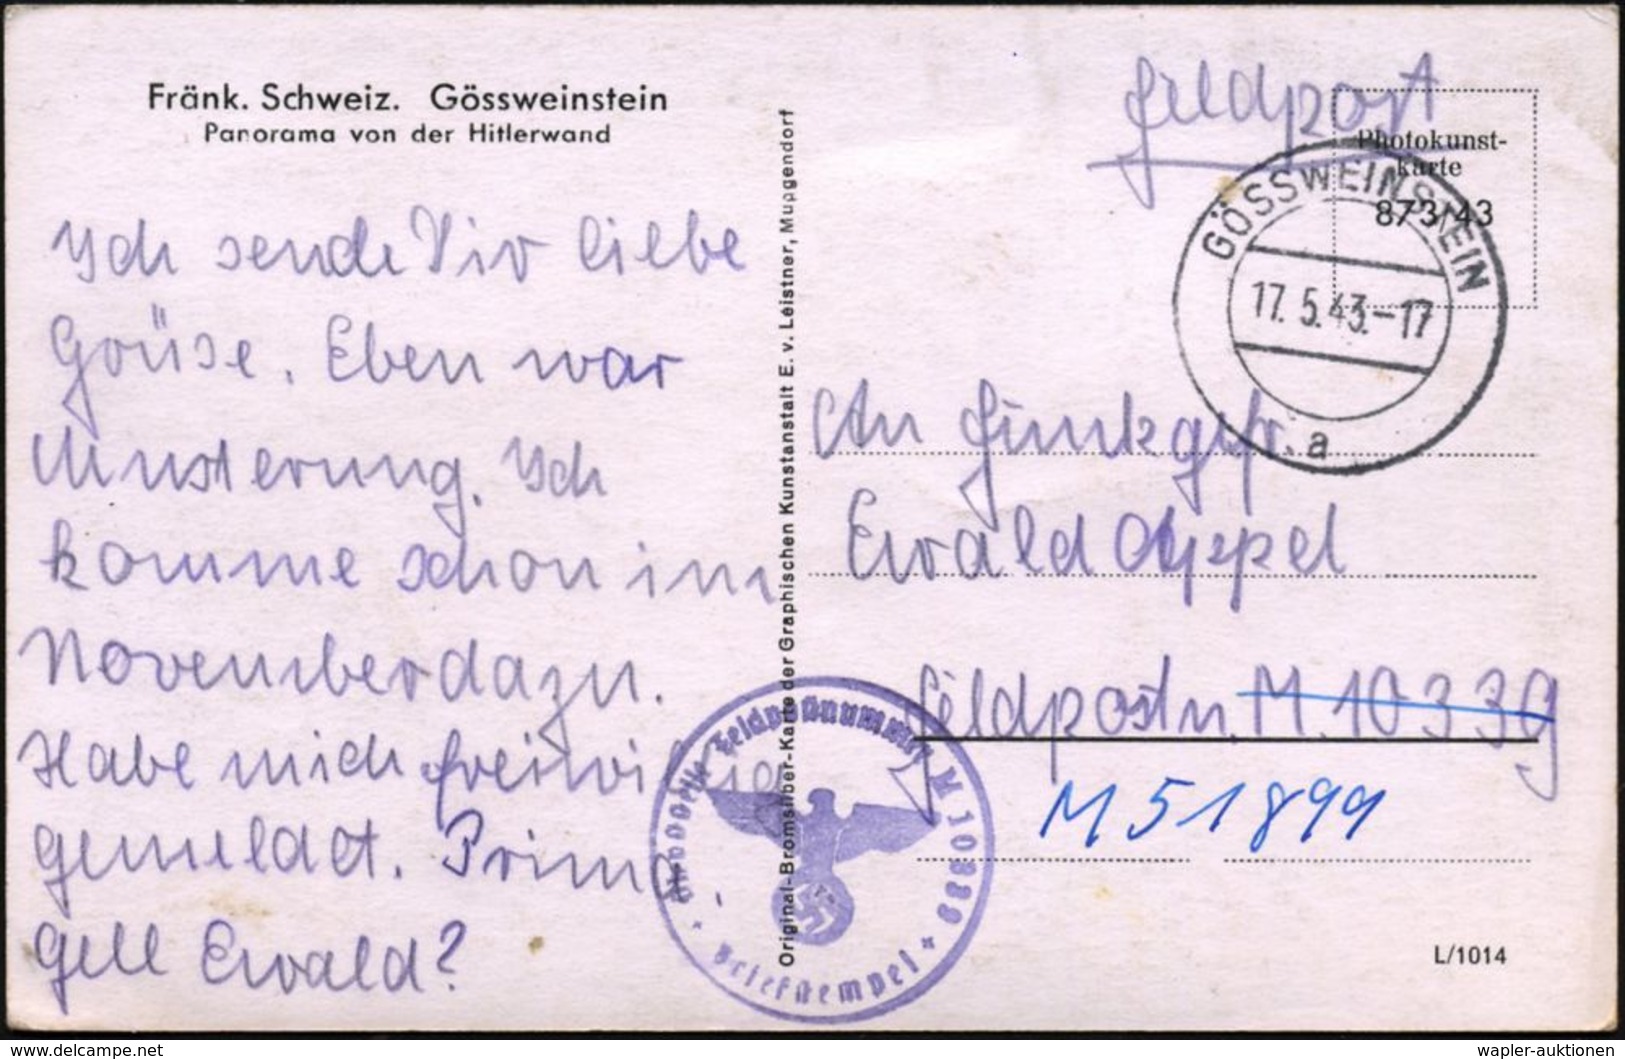 Fränk. Schweiz. Gössweinstein
Panorama von der Hitlerwand
Ich sende Dir liebe
Grüße. Eben war
Musterung. Ich
komme schon im
November dazu.
Habe mich freiwillig
gemeldet. Prima,
gell Ewald?
Original-Bromsilber-Karte der Graphischen Kunstanstalt E. v. Leistner, Muggendorf
Feldpost
Photokunst-
karte
873 43
GÖSSWEINSTEIN
17.5.43.-17
a
An Funkgefr.
Ewald Appel
Feldpostn. M.10339
M 51899
Feldpostnummer M 10339
Briefstempel
L/1014
www.delcampe.net
wapler-auktionen